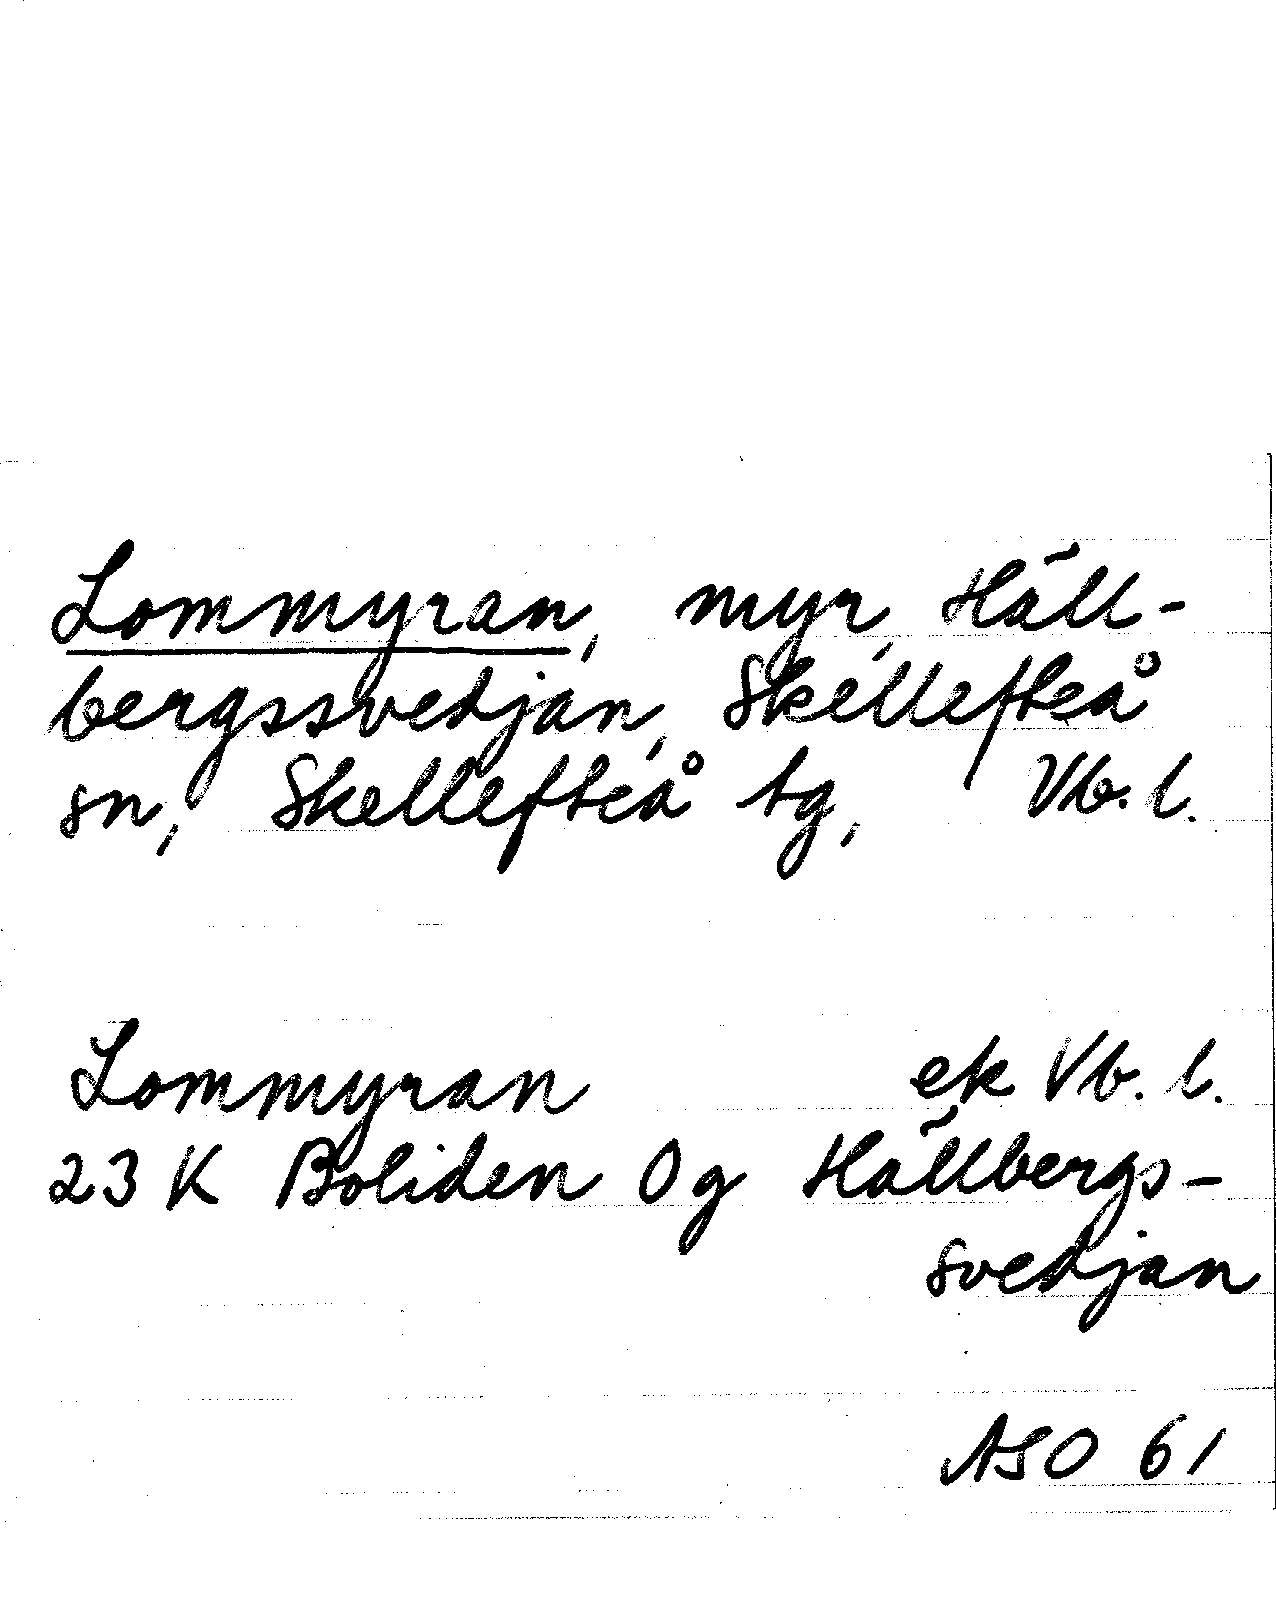 Lommyran, myr, Häll-
bergssvedjan, Skellefteå
sn, Skellefteå tg, Vb. l.
Lommyran ek Vb. l.
23 K Boliden 0 g Hällbergs-
svedjan
ASO 61